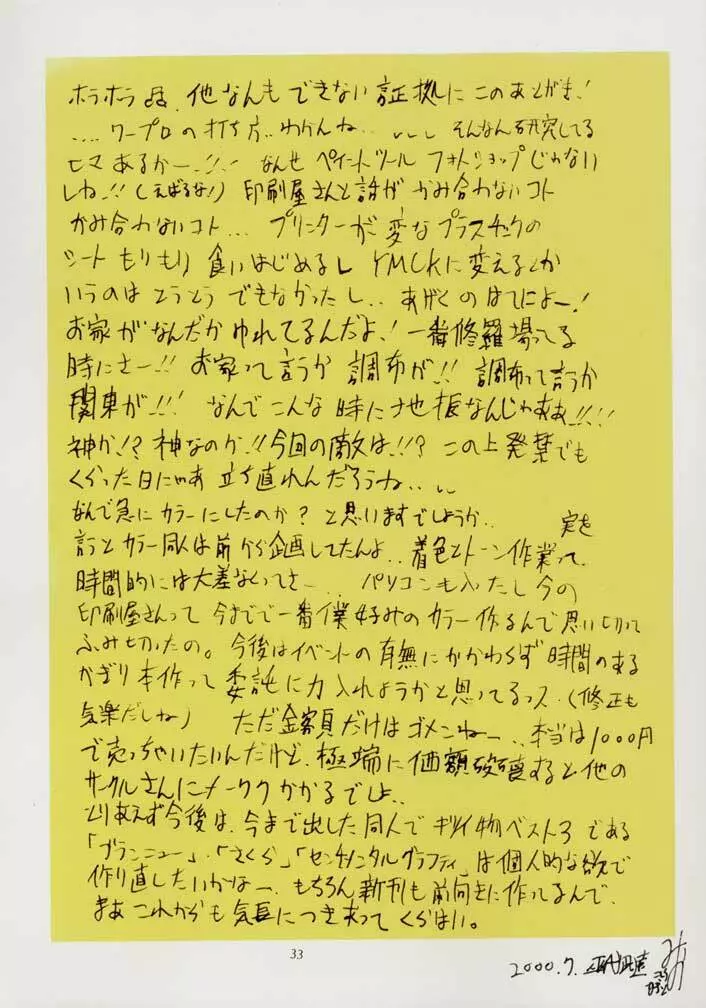 ホラホラね、他なんもできない証拠にこのあとがき!
....ワープロの打ち方..わかんね...、、、そんなん研究してる
ヒマあるかー..!!.! なんせペイントツールフォトショップじゃない
しね..!!(えばるな!) 印刷屋さんと話がかみ合わないコト
かみ合わないコト... プリンターが変なプラスチックの
シートもりもり食いはじめるし YMCKに変えるとか
いうのはとうとうできなかったし.. あげくのはてによー.!
お家がなんだかゆれてるんだよ.! 一番修羅場ってる
時にさー..!! お家って言うか 調布が.!! 調布って言うか
関東が..!!! なんでこんな時に地振なんじゃああ.!!.!!
神か.!? 神なのか.!! 今回の敵は..!!? この上発禁でも
くらった日にゃあ 立ち直れんだろうね....
なんで急にカラーにしたのか?と思いますでしょうか.. 実を
言うとカラー同人は前から企画してたんよ..着色とトーン作業って、
時間的には大差なくってさー... パソコンも入ったし今の
印刷屋さんって今までで一番僕好みのカラー作るんで思い切って
ふみ切ったの。今後はイベントの有無にかかわらず時間のある
かぎり本作って委託に力入れようかと思ってるっス.(修正も
気楽だしね) ただ金額面だけはゴメンねー...本当は1000円
で売っちゃいたいんだけど、極端に価額破壊すると他の
サークルさんにメーワクかかるでしょ..
とりあえず今後は、今まで出した同人でキツイ物ベスト3である
「ブランニュー」.「さくら」「センチメンタルグラフティ」は個人的な欲で
作り直したいかなー、もちろん新刊も前向きに作ってるんで、
まあこれからも気長につき合ってくらはい。
33
2000.7.